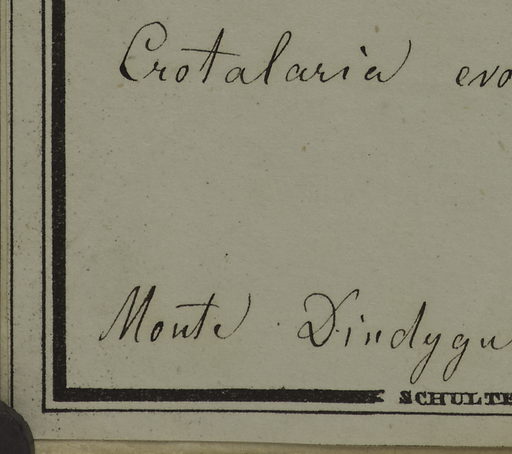 Crotalaria evo
Monte Dindygu
SCHULTE